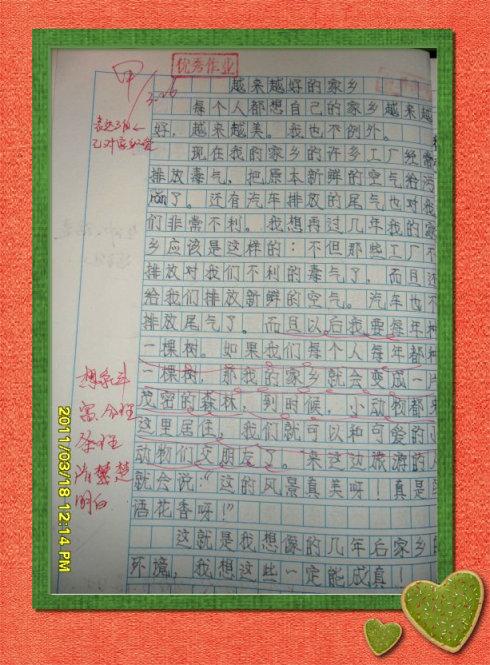 优秀作业
甲
3.26
越来越好的家乡
每个人都想自己的家乡越来越
好，越来越美。我也不例外。
现在我的家乡的许多工厂经常
排放毒气，把原本新鲜的空气给污
了。还有汽车排放的尾气也对我
们非常不利。我想再过几年我的家
乡应该是这样的：不但那些工厂不
排放对我们不利的毒气了，而且还
给我们排放新鲜的空气。汽车也不
排放尾气了。而且以后我要每年种
一棵树。如果我们每个人每年都种
一棵树，那我的家乡就会变成一片
茂密的森林，到时候，小动物都来
这里居住，我们就可以和可爱的小
动物们交朋友了。来这边旅游的人
就会说：“这的风景真美呀！真是鸟
语花香呀！”
这就是我想像的几年后家乡的
环境，我想这些一定能成真！
想象丰
富
清楚
明白
2011/03/18 12:14 PM